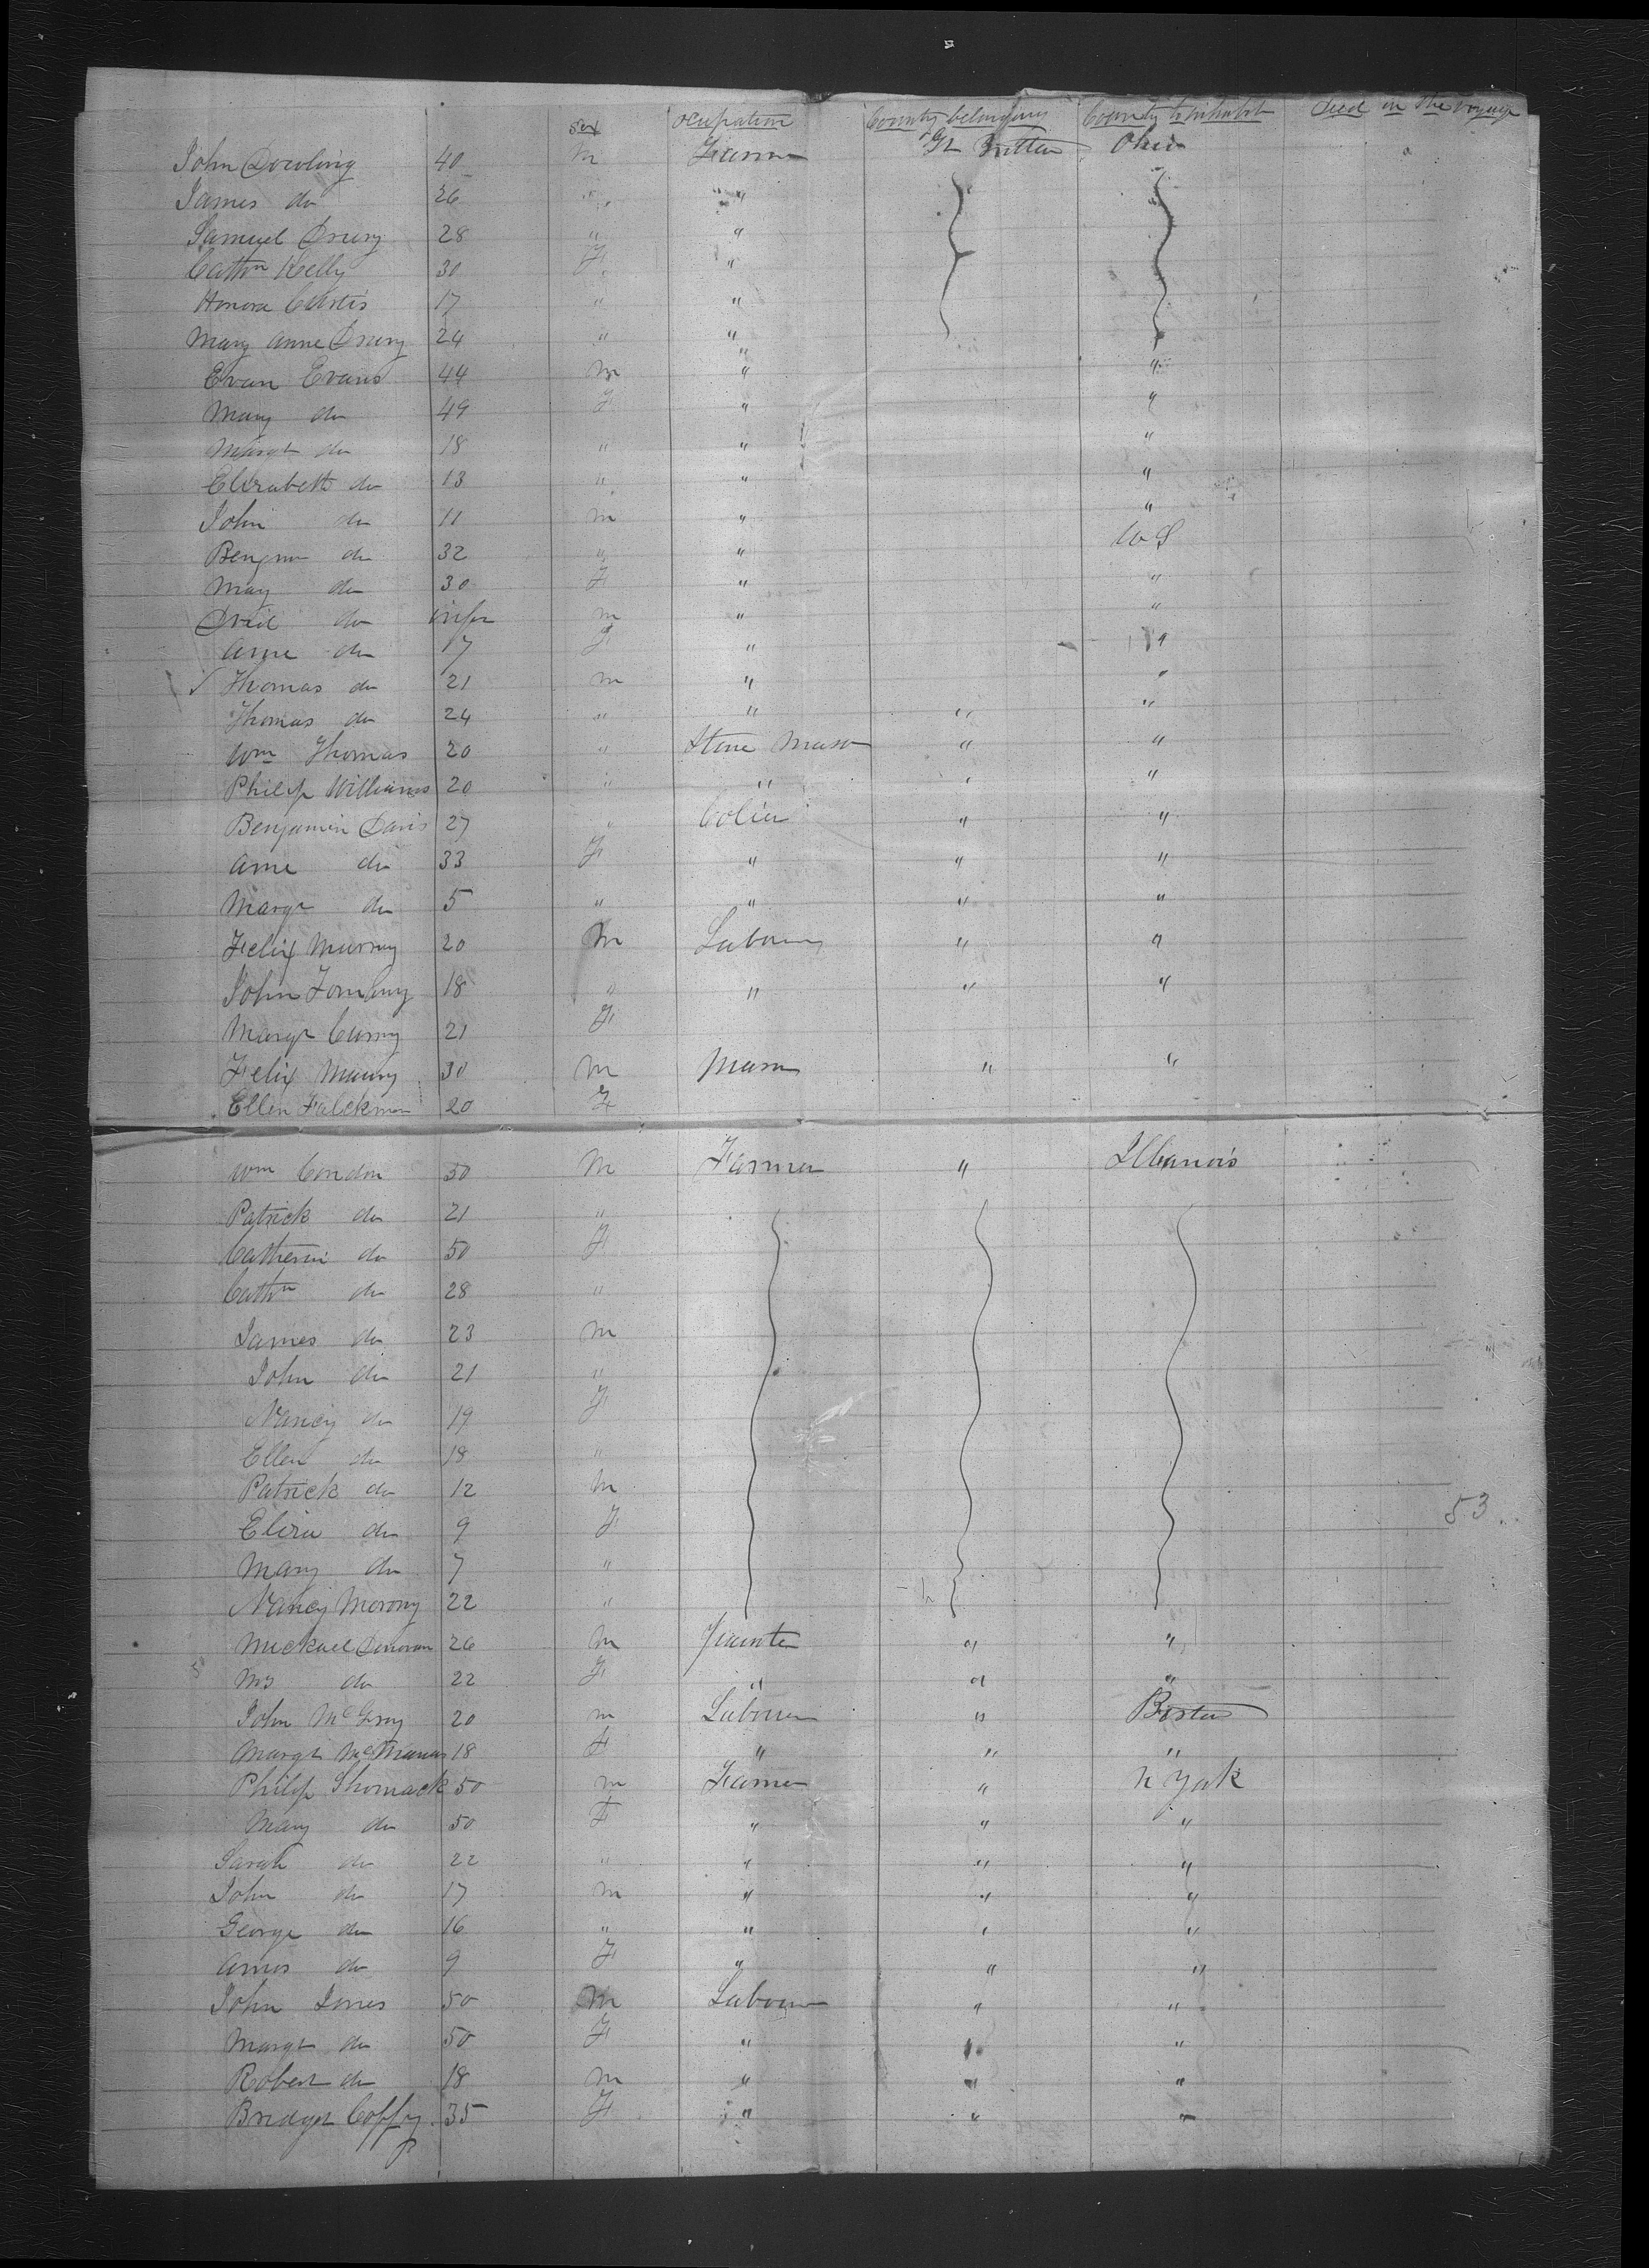 Sex Ocupation Country belonging Country to inhabit Died on the Voyage
John Dowling 40 M Farmer Gt Brittan Ohio
James do 26 " "
Samuel Drury 28 " "
Cathn Kelly 30 F "
Honora Curtis 17 " "
Mary Anne Drury 24 " "
Evan Evans 44 M " "
Mary do 49 F " "
Margt do 18 " " "
Elizabeth do 13 " " "
John do 11 M " "
Benjmn do 32 " " U S
May do 30 F " "
do infan M " "
Anne do 17 F " "
Thomas do 21 M " "
Thomas do 24 " " " "
Wm Thomas 20 " Stone Mason " "
Philip Williams 20 " " " "
Benjamin Davis 27 " Colier " "
Anne do 33 F " " "
Margt do 5 " " " "
Felix Murray 20 M Labourer " "
John 18 " " " "
Margt Curry 21 F
Felix 30 M Mason " "
Ellen 20 F
Wm Condon 50 M Farmer " Illanois
Patrick do 21 "
Catherin do 50 F
Cathn do 28 "
James do 23 M
John do 21 "
Nancy do 19 F
Ellen do 18 "
Patrick do 12 M
Eliza do 9 F
53
Mary do 7 "
Nancy Morony 22 "
Mickael Donovan 26 M " "
Mrs do 22 F " " "
John McGroy 20 M Labourer " Boston
Margt McManus 18 F " " "
Philip Shomack 50 M Farmer " N York
Mary do 50 F " " "
Sarah do 22 " " " "
John do 17 M " " "
George do 16 " " " "
Amos do 9 F " " "
John Jones 50 M Labourer " "
Margt do 50 F " " "
Robert do 18 M " " "
Bridget Coffy 35 F " " "